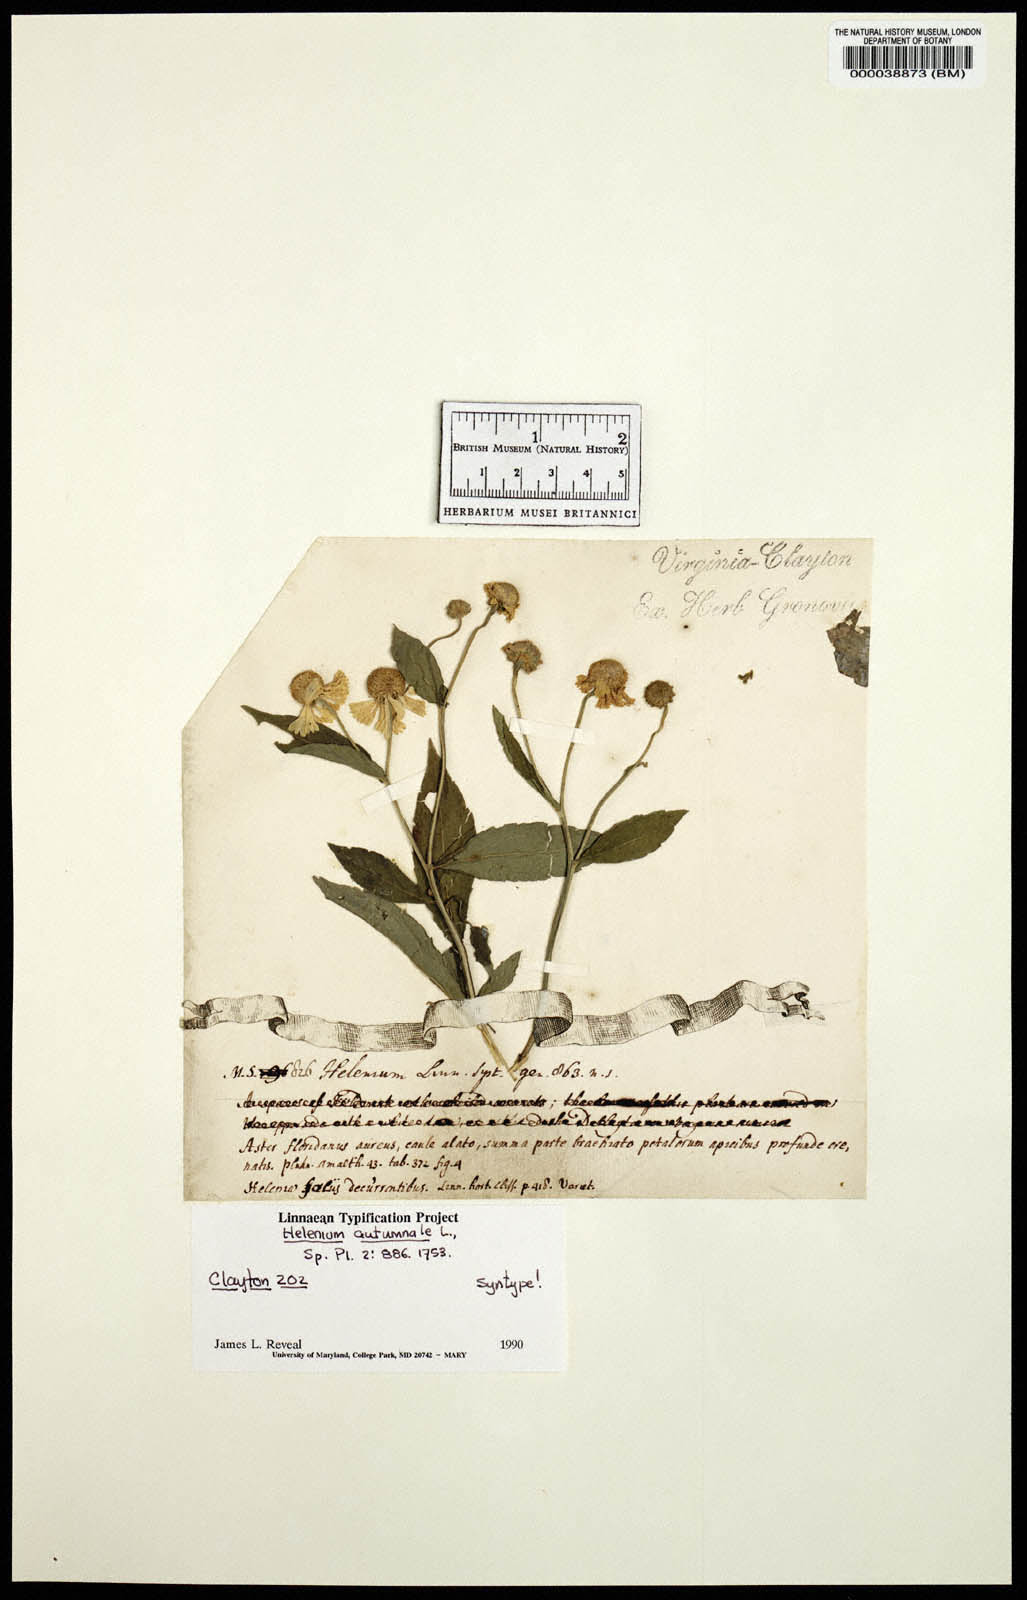 THE NATURAL HISTORY MUSEUM, LONDON
DEPARTMENT OF BOTANY
000038873 (BM)
1 2
BRITISH MUSEUM (NATURAL HISTORY)
1 2 3 4 5
HERBARIUM MUSEI BRITANNICI
Virginia-Clayton
Ex. Herb Gronovii
M.S. 826 Helenium Linn. Syst. gen. 863. n. 1.
Aster floridanus aureus, caule alato, summa parte brachiato petalorum apicibus profunde cre,
natis. plukn. amalth. 43. tab. 372 fig. 4
Helenia foliis decurrentibus. Linn. hort. Cliff. p. 418. Variet.
Linnaean Typification Project
Helenium autumnale L.,
Sp. Pl. 2: 886. 1753.
Clayton 202 syntype!
James L. Reveal 1990
University of Maryland, College Park, MD 20742 – MARY